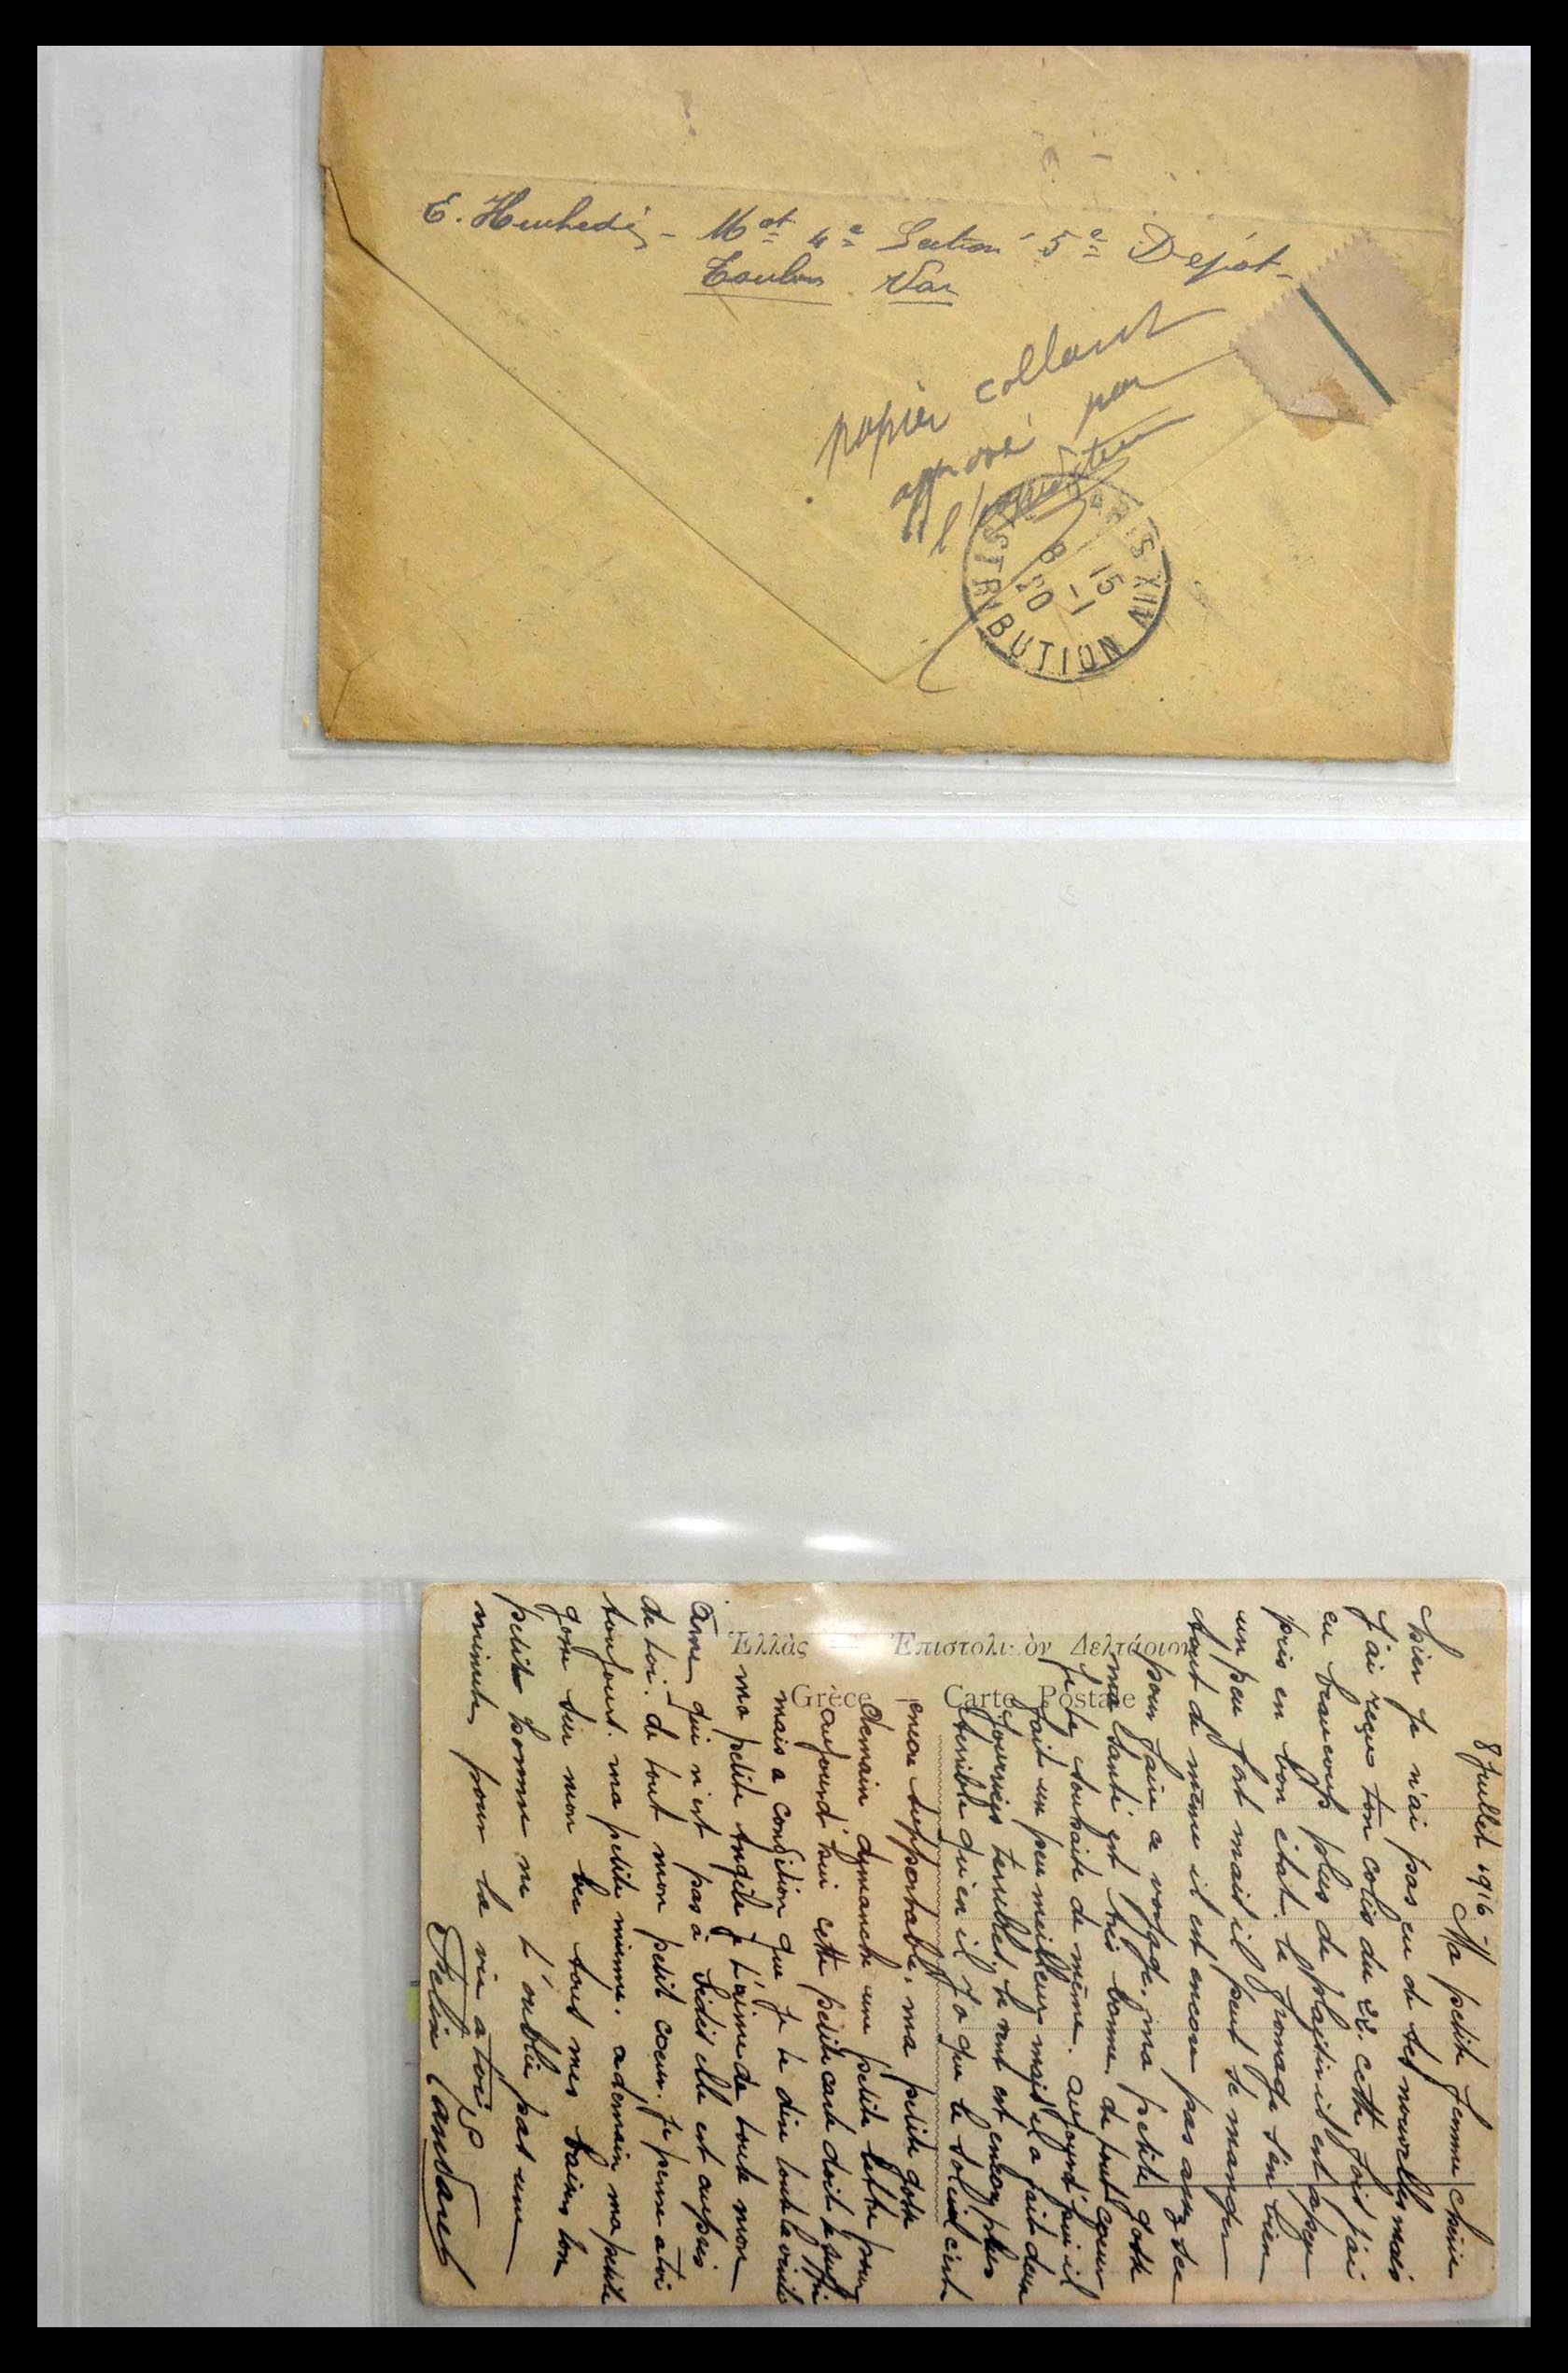 E. Huchedé - Mot 4e Section 5e Dépôt -
Toulon Var
papier collant
apposé par
l'expéditeur
PARIS XIII
15 -1
8 20
DISTRIBUTION
Ἑλλὰς — Ἐπιστολικὸν Δελτάριον
Grèce — Carte Postale
8 Juillet 1916 Ma petite femme cherie
hier je n'ai pas eu de tes nouvelles mais
j'ai reçu ton colis du 22. cette fois j'ai
eu beaucoup plus de plaisir il est
pris en bon état. le fromage s'en bien
un peu fort mais il peut se manger
tout de même il est encore pas assez sec
pour faire ce voyage. ma petite gosse
ma santé est très bonne. de tout coeur
je te souhaite de même. aujourd'hui il
fait un peu meilleur mais il a fait deux
journées terribles, le vent est encore plus
terrible qu'en il y a que le soleil c'est
encore supportable. ma petite gosse
demain dymanche une petite lettre pour
aujourd'hui cette petite carte doit te suffir
mais a condition que je te dise toute la vérité
ma petite Angèle je t'aime de toute mon
âme qui n'est pas à Sidis elle est auprès
de toi. de tout mon petit coeur. je pense a toi
toujours. ma petite mienne. a demain ma petite
gosse sur mon bec tous mes baisers ton
petit homme ne t'oublie pas une
minute pour la vie a toi
Felix